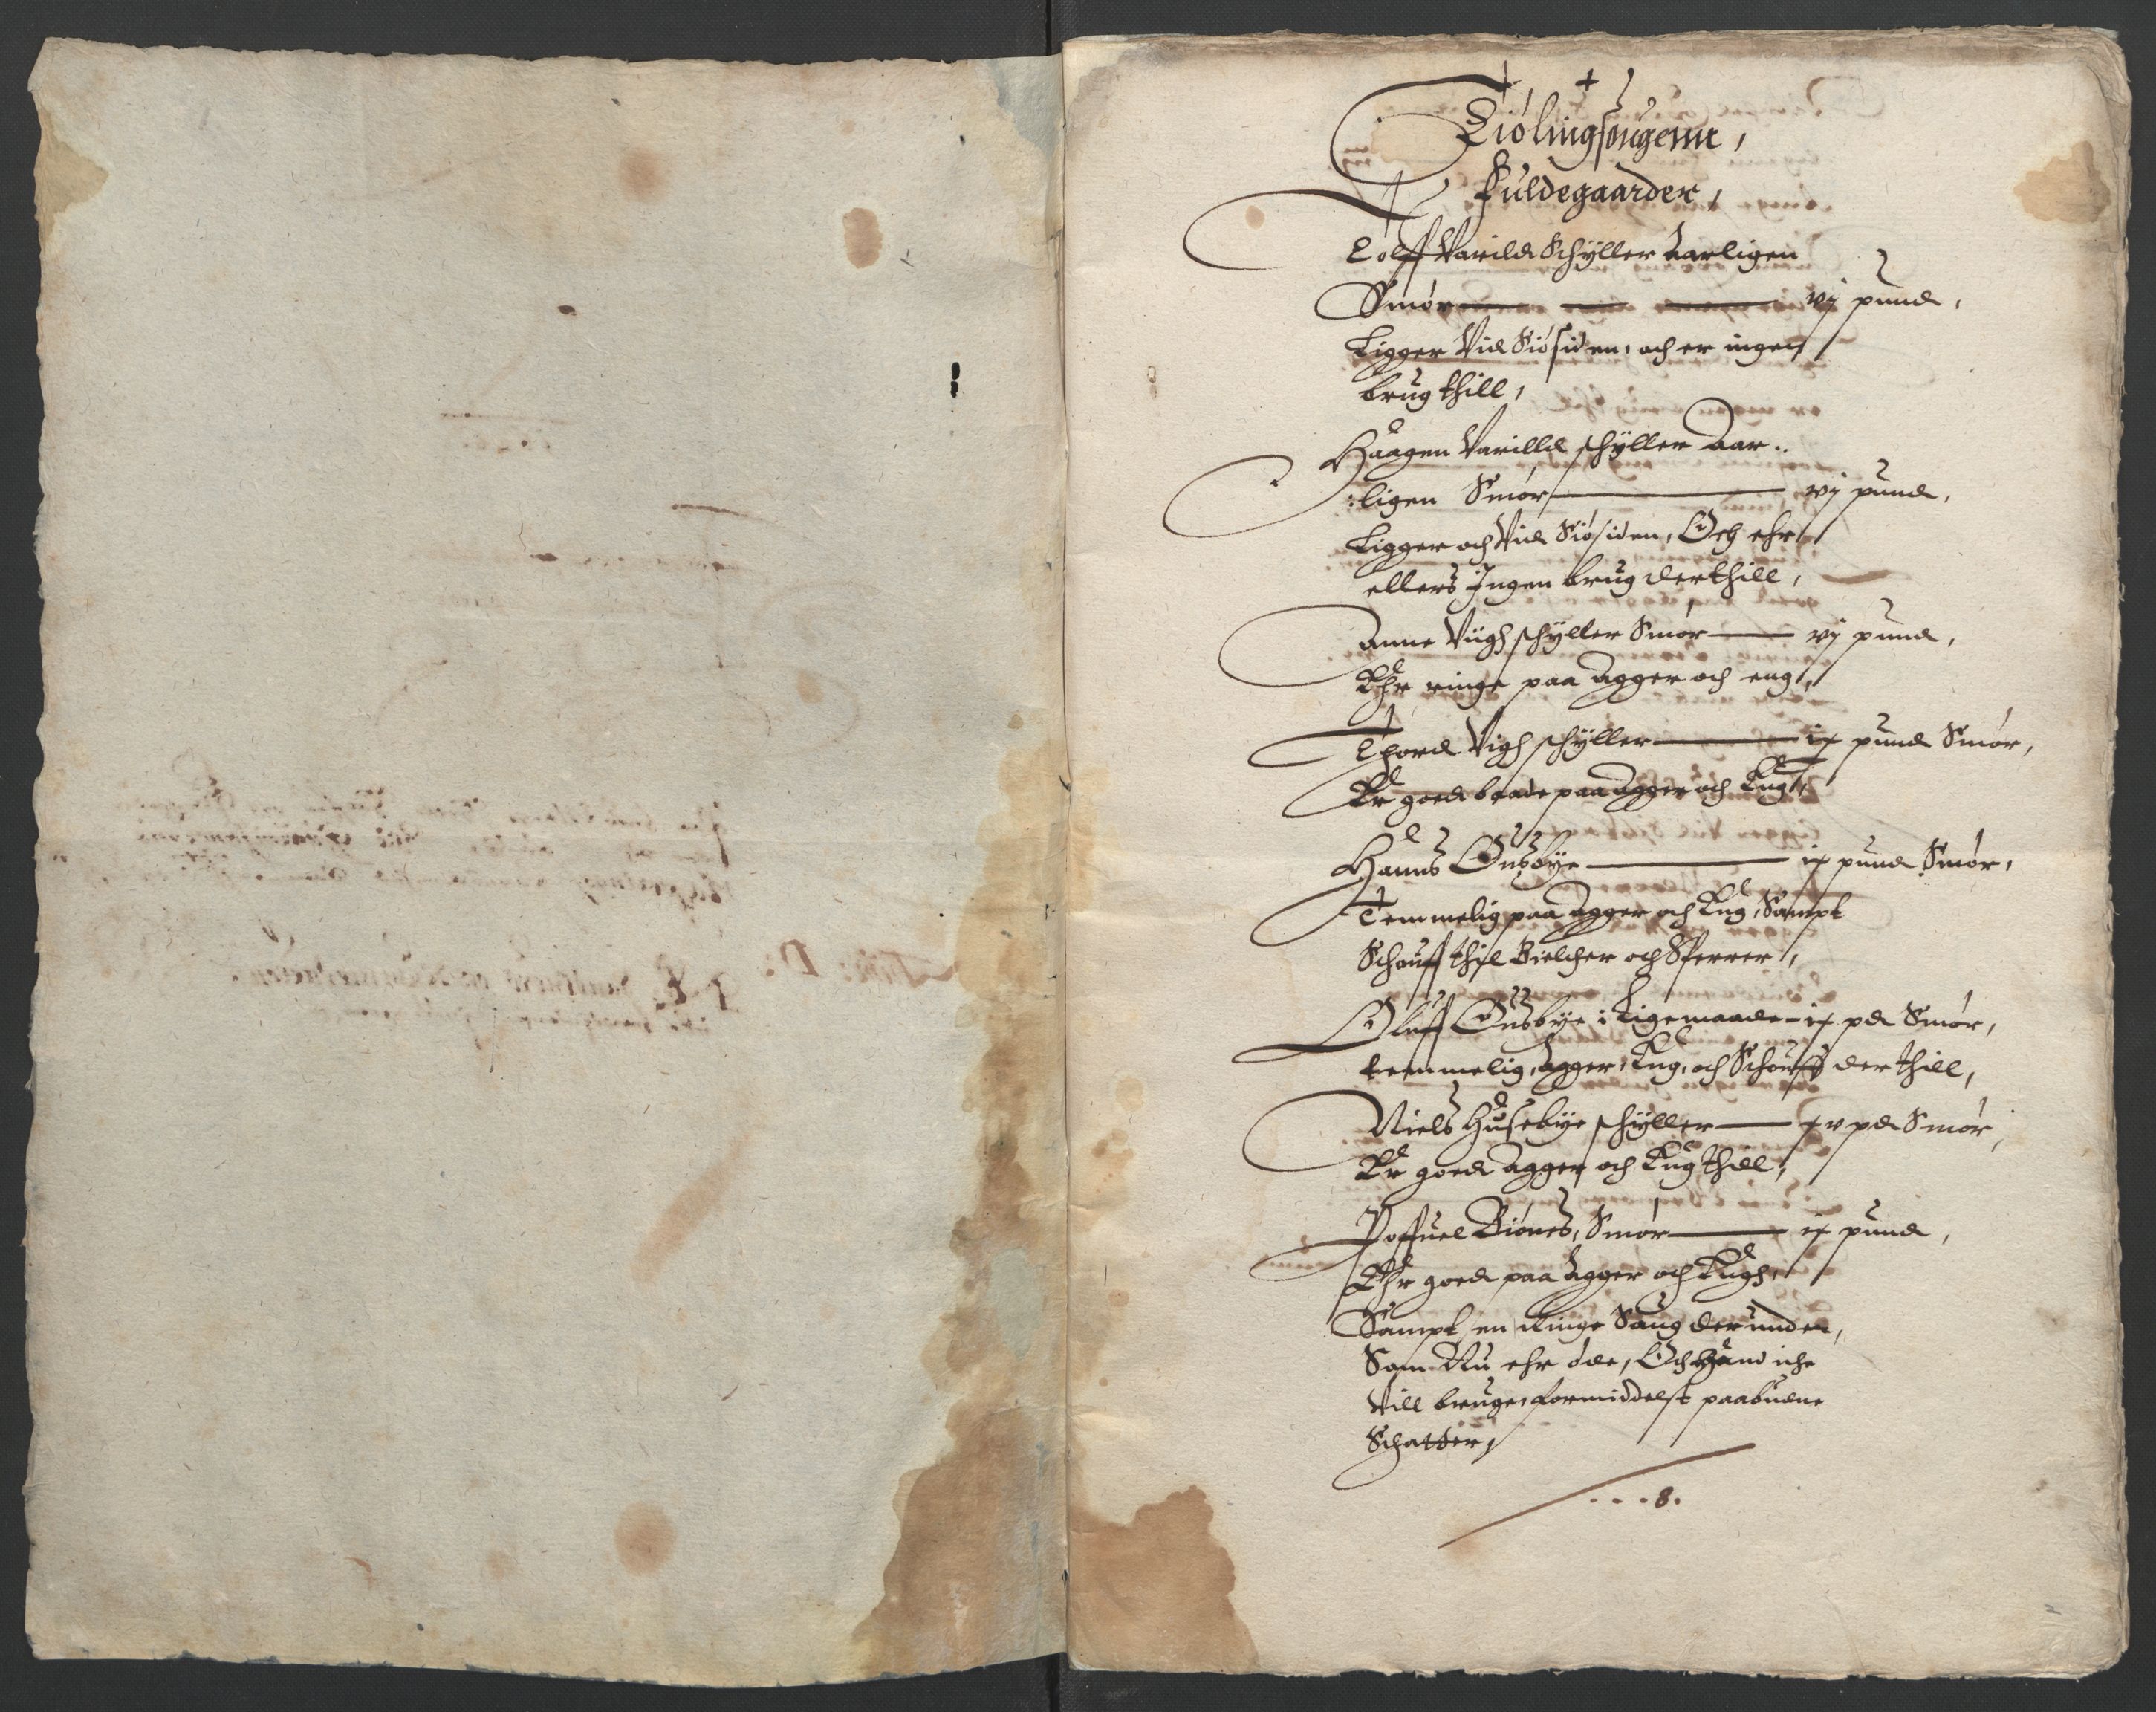 Tiølingsougenn,
Fuldegaarder,
Tolff Varild Schÿller Aarligen
Smør vj pund,
Ligger Vid Siøsiden, och er ingen
brug thill,
Haagen Varilld schÿller Aar:
:ligen Smør vj pund,
Ligger och Vid Siøsiden, Och ehr
ellers Ingen brug derthill,
Anne Viigh schÿller Smør vj pund,
Ehr ringe paa Agger och eng,
Thord Vigh schÿller ix pund Smør,
Er goed baade paa Agger och Eng,
Hanns Ousbÿe ix pund Smør,
Temmelig paa Agger och Eng, Sampt
Schouff thil Bielcher och Sperrer,
Oluff Ousbÿe i Ligemaade ix pd Smør,
temmelig, Agger, Eng, och Schouff der thill,
Niels Husebÿe schÿller xv pd Smør,
Er goed Agger och Eng thill,
Poffuel Biønes, Smør ix pund,
Ehr goed paa Agger och Engh,
Sampt en Ringe Saug derunder,
Som Nu ehr øde, Och Hand iche
Vill bruge, formiddelst paabudne
Schatter,
...8.